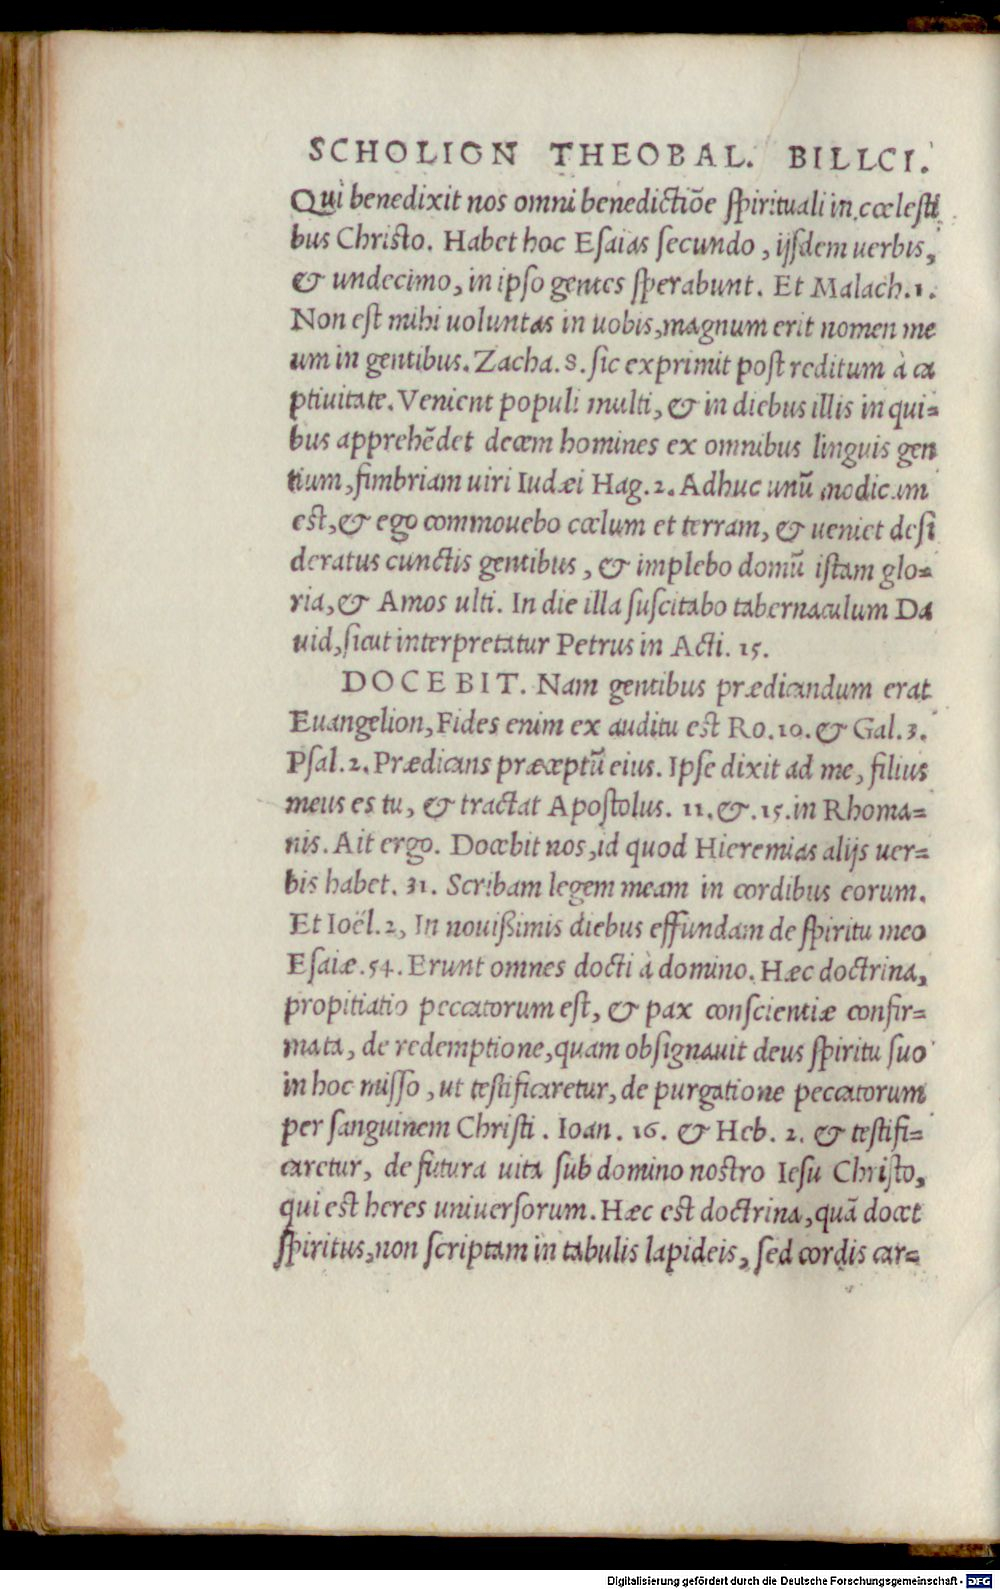 SCHOLION THEOBAL. BILLCI.
Qui benedixit nos omni benedictiõe ſpirituali in cœleſti
bus Chriſto. Habet hoc Eſaias ſecundo, ijſdem uerbis,
& undecimo, in ipſo gentes ſperabunt. Et Malach.1.
Non eſt mihi uoluntas in uobis, magnum erit nomen me
um in gentibus. Zacha. 8. ſic exprimit poſt reditum à ca
ptiuitate. Venient populi multi, & in diebus illis in qui=
bus apprehẽdet decem homines ex omnibus linguis gen
tium, fimbriam uiri Iudæi Hag. 2. Adhuc unũ modicum
eſt, & ego commouebo cœlum et terram, & ueniet deſi
deratus cunctis gentibus, & implebo domũ iſtam glo=
ria, & Amos ulti. In die illa ſuſcitabo tabernaculum Da
uid, ſicut interpretatur Petrus in Acti. 15.
DOCEBIT. Nam gentibus prædicandum erat
Euangelion, Fides enim ex auditu eſt Ro.10. & Gal.3.
Pſal.2. Prædicans præceptũ eius. Ipſe dixit ad me, filius
meus es tu, & tractat Apoſtolus. 11. &. 15. in Rhoma=
nis. Ait ergo. Docebit nos, id quod Hieremias alijs uer=
bis habet. 31. Scribam legem meam in cordibus eorum.
Et Ioël.2, In nouißimis diebus effundam de ſpiritu meo
Eſaiæ.54. Erunt omnes docti à domino. Hæc doctrina,
propitiatio peccatorum eſt, & pax conſcientiæ confir=
mata, de redemptione, quam obſignauit deus ſpiritu ſuo
in hoc miſſo, ut teſtificaretur, de purgatione peccatorum
per ſanguinem Chriſti. Ioan. 16. & Heb. 2. & teſtifi=
caretur, de futura uita ſub domino noſtro Ieſu Chriſto,
qui eſt heres uniuerſorum. Hæc eſt doctrina, quã docet
ſpiritus, non ſcriptam in tabulis lapideis, ſed cordis car=
Digitalisierung gefördert durch die Deutsche Forschungsgemeinschaft - DFG